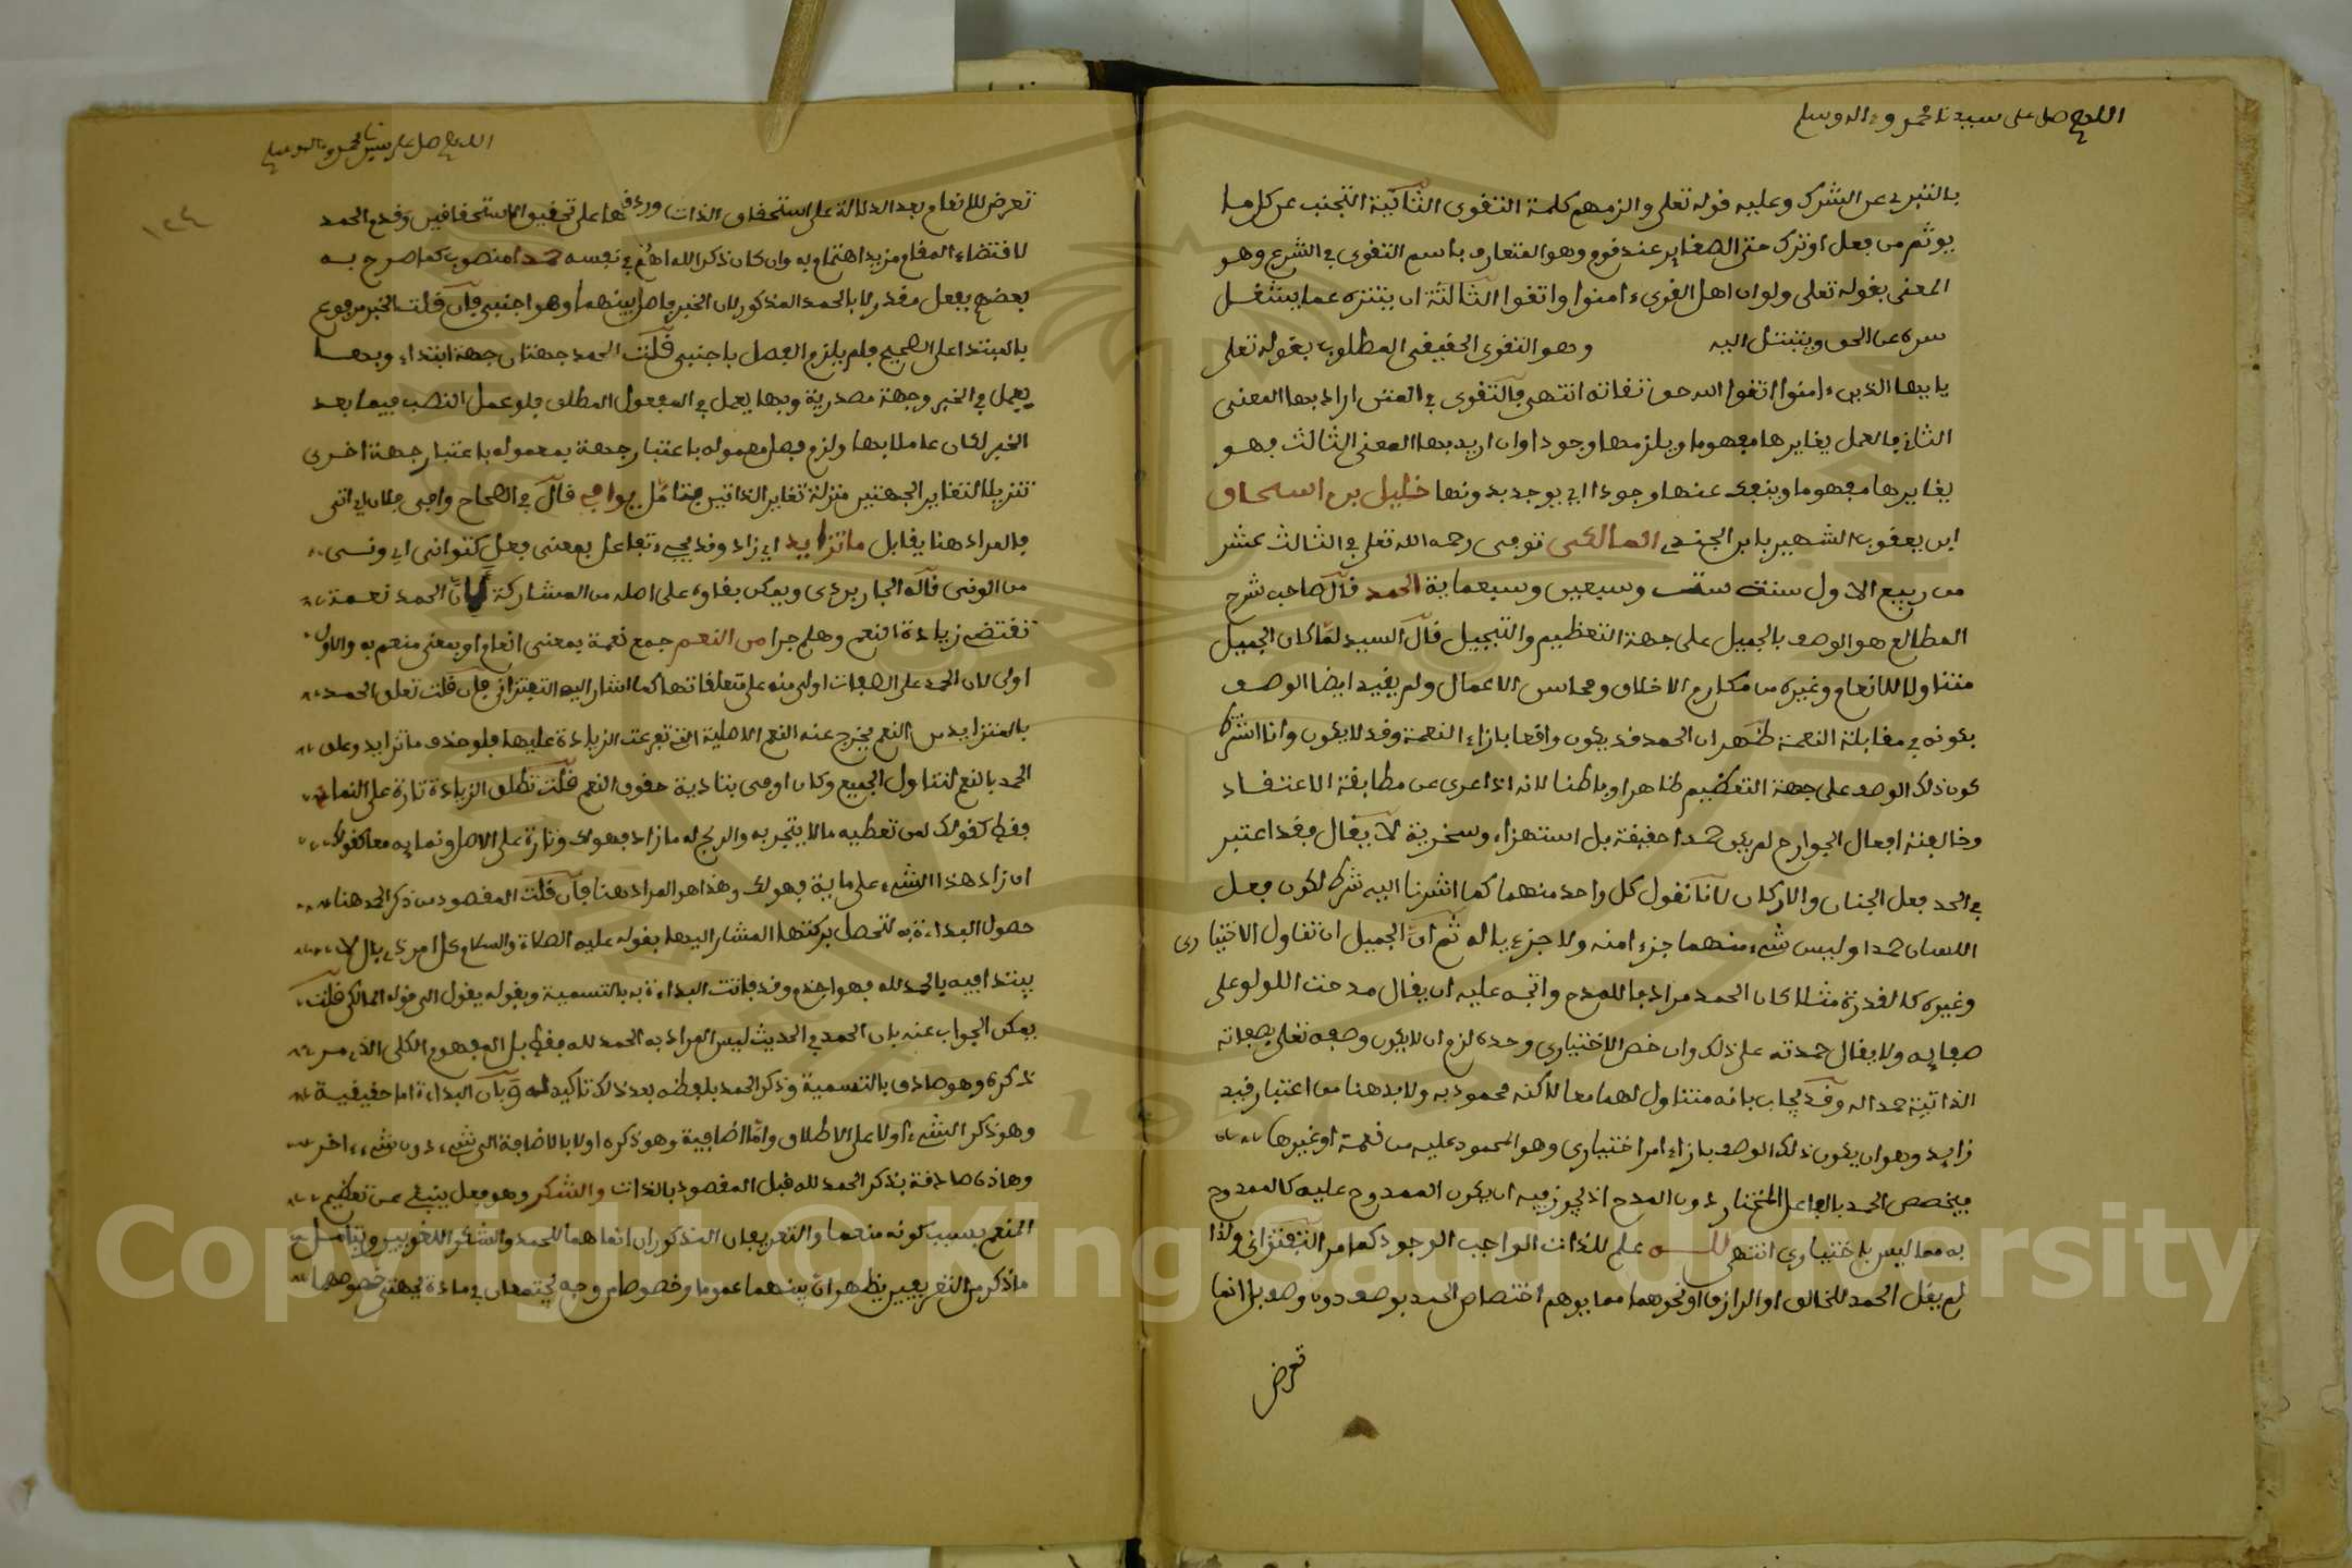 اللهم صل على سيدنا محمد وءاله وسلم
بالتبرء عن الشرك وعليه قوله تعلى والزمهم كلمة التقوى الثانية التجنب عن كل ما
يوثم من فعل او ترك حتى الصغاير عند قوم وهو المتعارف باسم التقوى في الشرع وهو
المعنى بقوله تعلى ولو ان اهل القرى ءامنوا واتقوا الثالثة ان يتنزه عما يشغل
سره عن الحق ويتبتل اليه وهو التقوى الحقيقي المطلوب بقوله تعلى
يا ايها الذين ءامنوا اتقوا الله حق تقاته انتهى فالتقوى في المتن اراد بها المعنى
الثاني فالعمل يغايرها مفهوما ويلزمها وجودا وان اريد بها المعنى الثالث فهو
يغايرها مفهوما وينفك عنها وجودا اي يوجد بدونها خليل بن اسحاق
ابن يعقوب الشهير بابن الجندي المالكي توفي رحمه الله تعلى في الثالث عشر
من ربيع الاول سنة ست وسبعين وسبعماية الحمد قال صاحب شرح
المطالع هو الوصف بالجميل على جهة التعظيم والتبجيل قال السيد لما كان الجميل
متناولا للانعام وغيره من مكارم الاخلاق ومحاسن الاعمال ولم يقيد ايضا الوصف
بكونه في مقابلة النعمة ظهر ان الحمد قد يكون واقعا بازاء النعمة وقد لا يكون وانما اشترط
كون ذلك الوصف على جهة التعظيم ظاهرا وباطنا لانه اذا عرى عن مطابقة الاعتقاد
وخالفته افعال الجوارح لم يكن حمدا حقيقة بل استهزاء وسخرية لا يقال فقد اعتبر
في الحد فعل الجنان والاركان لانا نقول كل واحد منهما كما اشرنا اليه شرط لكون فعل
اللسان حمدا وليس شيء منهما جزءا منه ولا جزءيا له ثم ان الجميل ان تناول الاختياري
وغيره كالقدرة مثلا كان الحمد مرادفا للمدح واتجه عليه ان يقال مدحت اللولو على
صفايه ولا يقال حمدته على ذلك وان خص الاختياري وحده لزم ان لا يكون وصفه تعلى بصفاته
الذاتية حمدا له وقد يجاب بانه متناول لهما معا لاكنه محمود به ولا بد هنا من اعتبار قيد
زايد وهو ان يكون ذلك الوصف بازاء امر اختياري وهو المحمود عليه من نعمة او غيرها
فيختص الحمد بالفاعل المختار دون المدح اذ يجوز فيه ان يكون الممدوح عليه كالممدوح
به مما ليس باختياري انتهى لله علم للذات الواجب الوجود كما مر التفتزاني ولذا
لم يقل الحمد للخالق او الرازق او نحوهما مما يوهم اختصاص الحمد بوصف دون وصف بل انما
تعرض
اللهم صل على سيدنا محمد وءاله وسلم
١٢٤
تعرض للانعام بعد الدلالة على استحقاق الذات على تحقيق الاستحقاقين وقدم الحمد
لاقتضاء المقام مزيد اهتمام به وان كان ذكر الله اهم في نفسه حمدا منصوب كما صرح به
بعضهم بفعل مقدر لا بالحمد المذكور لان الخبر فاصل بينهما وهو اجنبي فان قلت الخبر مرفوع
بالمبتدا على الصحيح فلم يلزم الفصل باجنبي قلت الحمد جهتان جهة ابتداء وبها
يعمل في الخبر وجهة مصدرية وبها يعمل في المفعول المطلق فلو عمل النصب فيما بعد
الخبر لكان عاملا بها ولزم فصل معموله باعتبار جهة بمعموله باعتبار جهة اخرى
تنزيلا لتغاير الجهتين منزلة تغاير الذاتين فتامل يوافي قال في الصحاح وافى فلان اي اتى
فالمراد هنا يقابل ما تزايد اي زاد وقد يجيء تفاعل بمعنى فعل كتوانى اي ونى
من الونى قاله الجاربردي ويمكن بقاوه على اصله من المشاركة فان الحمد نعمة
تقتضي زيادة النعم وهلم جرا من النعم جمع نعمة بمعنى انعام او بمعنى منعم به والاول
اولى لان الحمد على الصفات اولى منه على متعلقاتها كما اشار اليه التفتزاني فان قلت تعلق الحمد
بالمتزايد من النعم يخرج عنه النعم الاصلية التي تفرعت الزيادة عليها فلو حذف ما تزايد وعلق
الحمد بالنعم لتناول الجميع وكان اوفى بتادية حقوق النعم قلت تطلق الزيادة تارة على النماء
فقط كقولك لمن تعطيه مالا يتجر به والربح له ما زاد فهو لك وتارة على الاصل ونمايه معا كقولك
ان زاد هذا الشيء على ماية فهو لك وهذا هو المراد هنا فان قلت المقصود من ذكر الحمد هنا
حصول البداءة به لتحصل بركتها المشار اليها بقوله عليه الصلاة والسلام كل امر ذي بال لا
يبتدا فيه بالحمد لله فهو اجذم وقد فاتت البداءة به بالتسمية وبقوله يقول الى قوله المالكي قلت
يمكن الجواب عنه بان الحمد في الحديث ليس المراد به الحمد لله فقط بل المفهوم الكلي الذي مر
ذكره وهو صادق بالتسمية وذكر الحمد بلفظه بعد ذلك تاكيد له وبان البداءة اما حقيقية
وهو ذكر الشيء اولا على الاطلاق واما اضافية وهو ذكره اولا بالاضافة الى شيء دون شيء ءاخر
وهاذه صادقة بذكر الحمد لله قبل المقصود بالذات والشكر وهو فعل ينبئ عن تعظيم
المنعم بسبب كونه منعما والتعريفان المذكوران انما هما للحمد والشكر اللغويين وبتامل
ما ذكر من التعريفين يظهر ان بينهما عموما وخصوصا من وجه يجتمعان في مادة
Copyright © King Saud University
1957